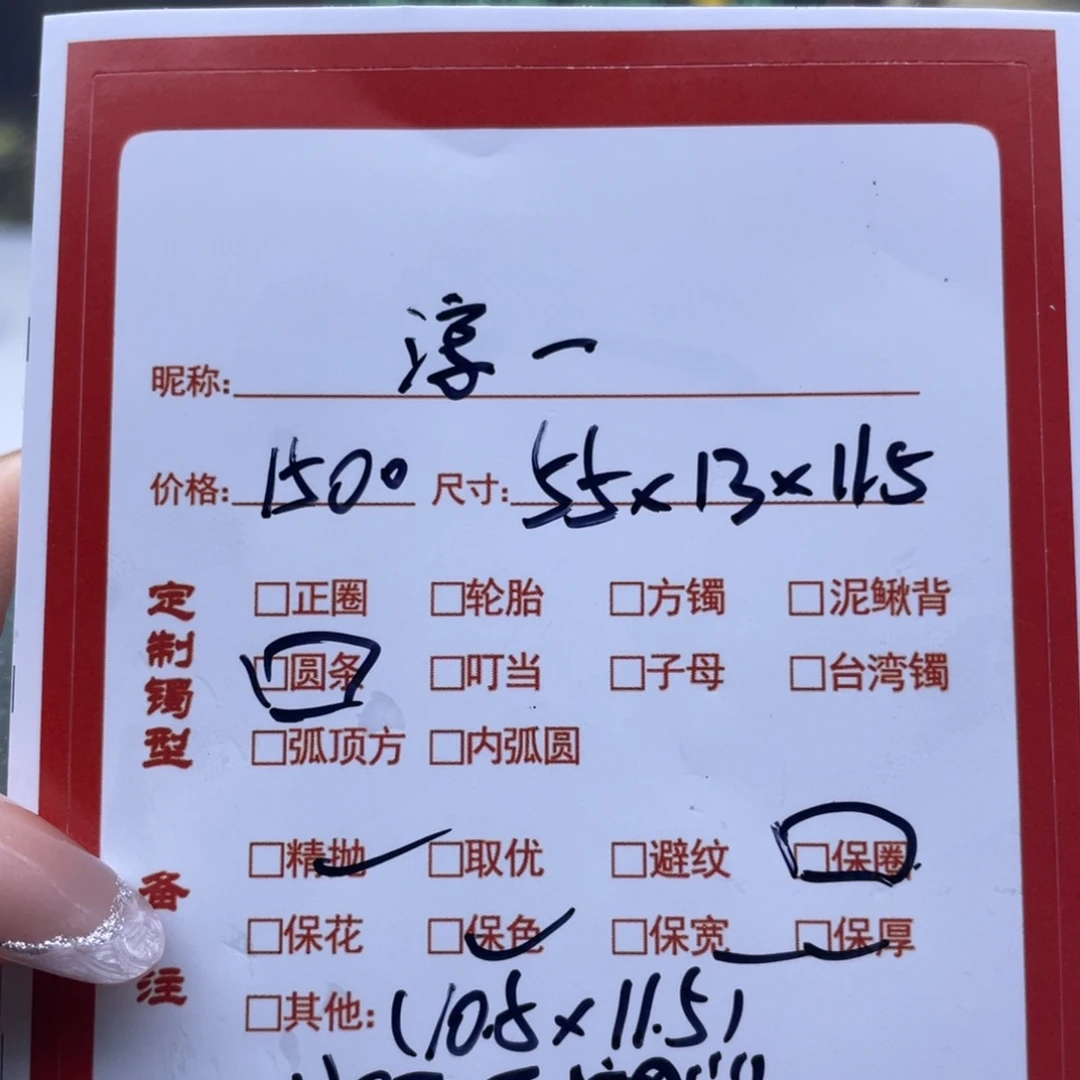 昵称: 淳一
价格: 1500 尺寸: 55x13x11.5
定制镯型
□正圈 □轮胎 □方镯 □泥鳅背
□圆条 □叮当 □子母 □台湾镯
□弧顶方 □内弧圆
备注
□精抛 □取优 □避纹 □保圈
□保花 □保色 □保宽 □保厚
□其他: (10.5x11.5)